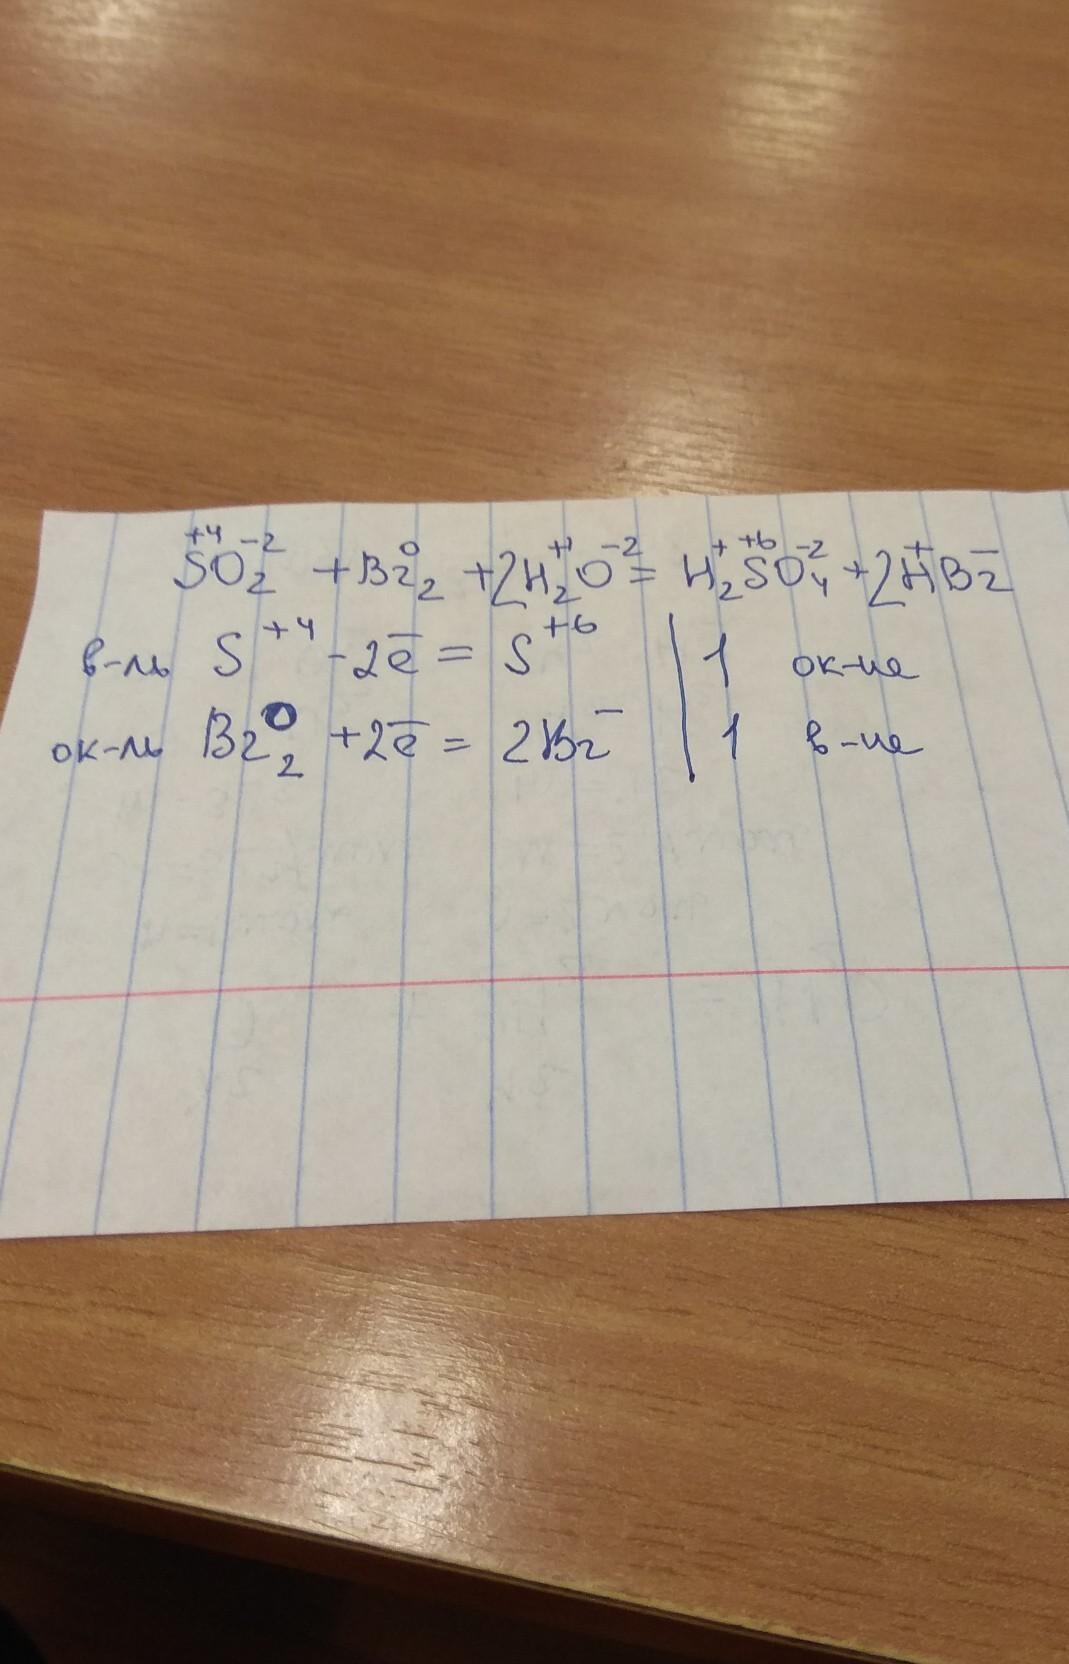 S⁺⁴O₂⁻² + Br₂⁰ + 2H₂⁺¹O⁻² = H₂⁺S⁺⁶O₄⁻² + 2H⁺Br⁻
в-ль S⁺⁴ - 2e̅ = S⁺⁶ | 1 ок-ие
ок-ль Br₂⁰ + 2e̅ = 2Br⁻ | 1 в-ие